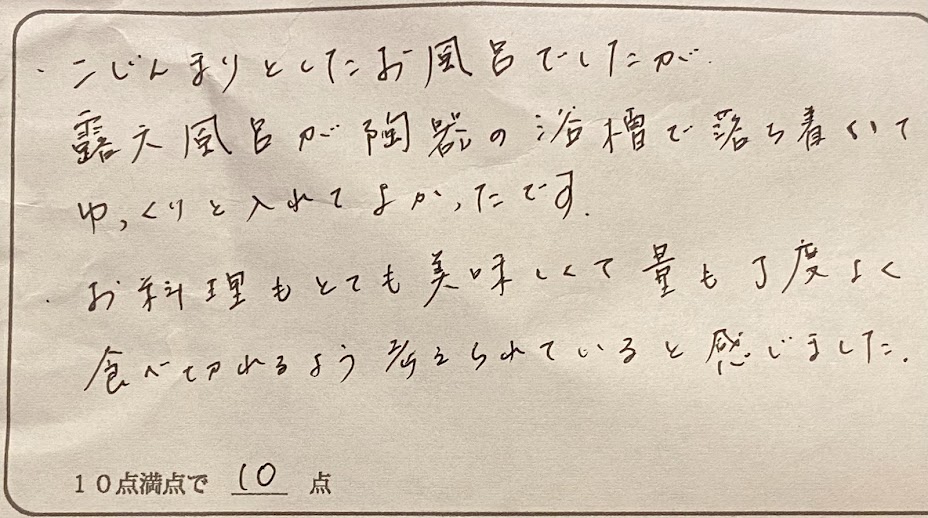 ・こじんまりとしたお風呂でしたが、
露天風呂が陶器の浴槽で落ち着いて
ゆっくりと入れてよかったです。
・お料理もとても美味しくて量も丁度よく
食べ切れるよう考えられていると感じました。
10点満点で 10 点